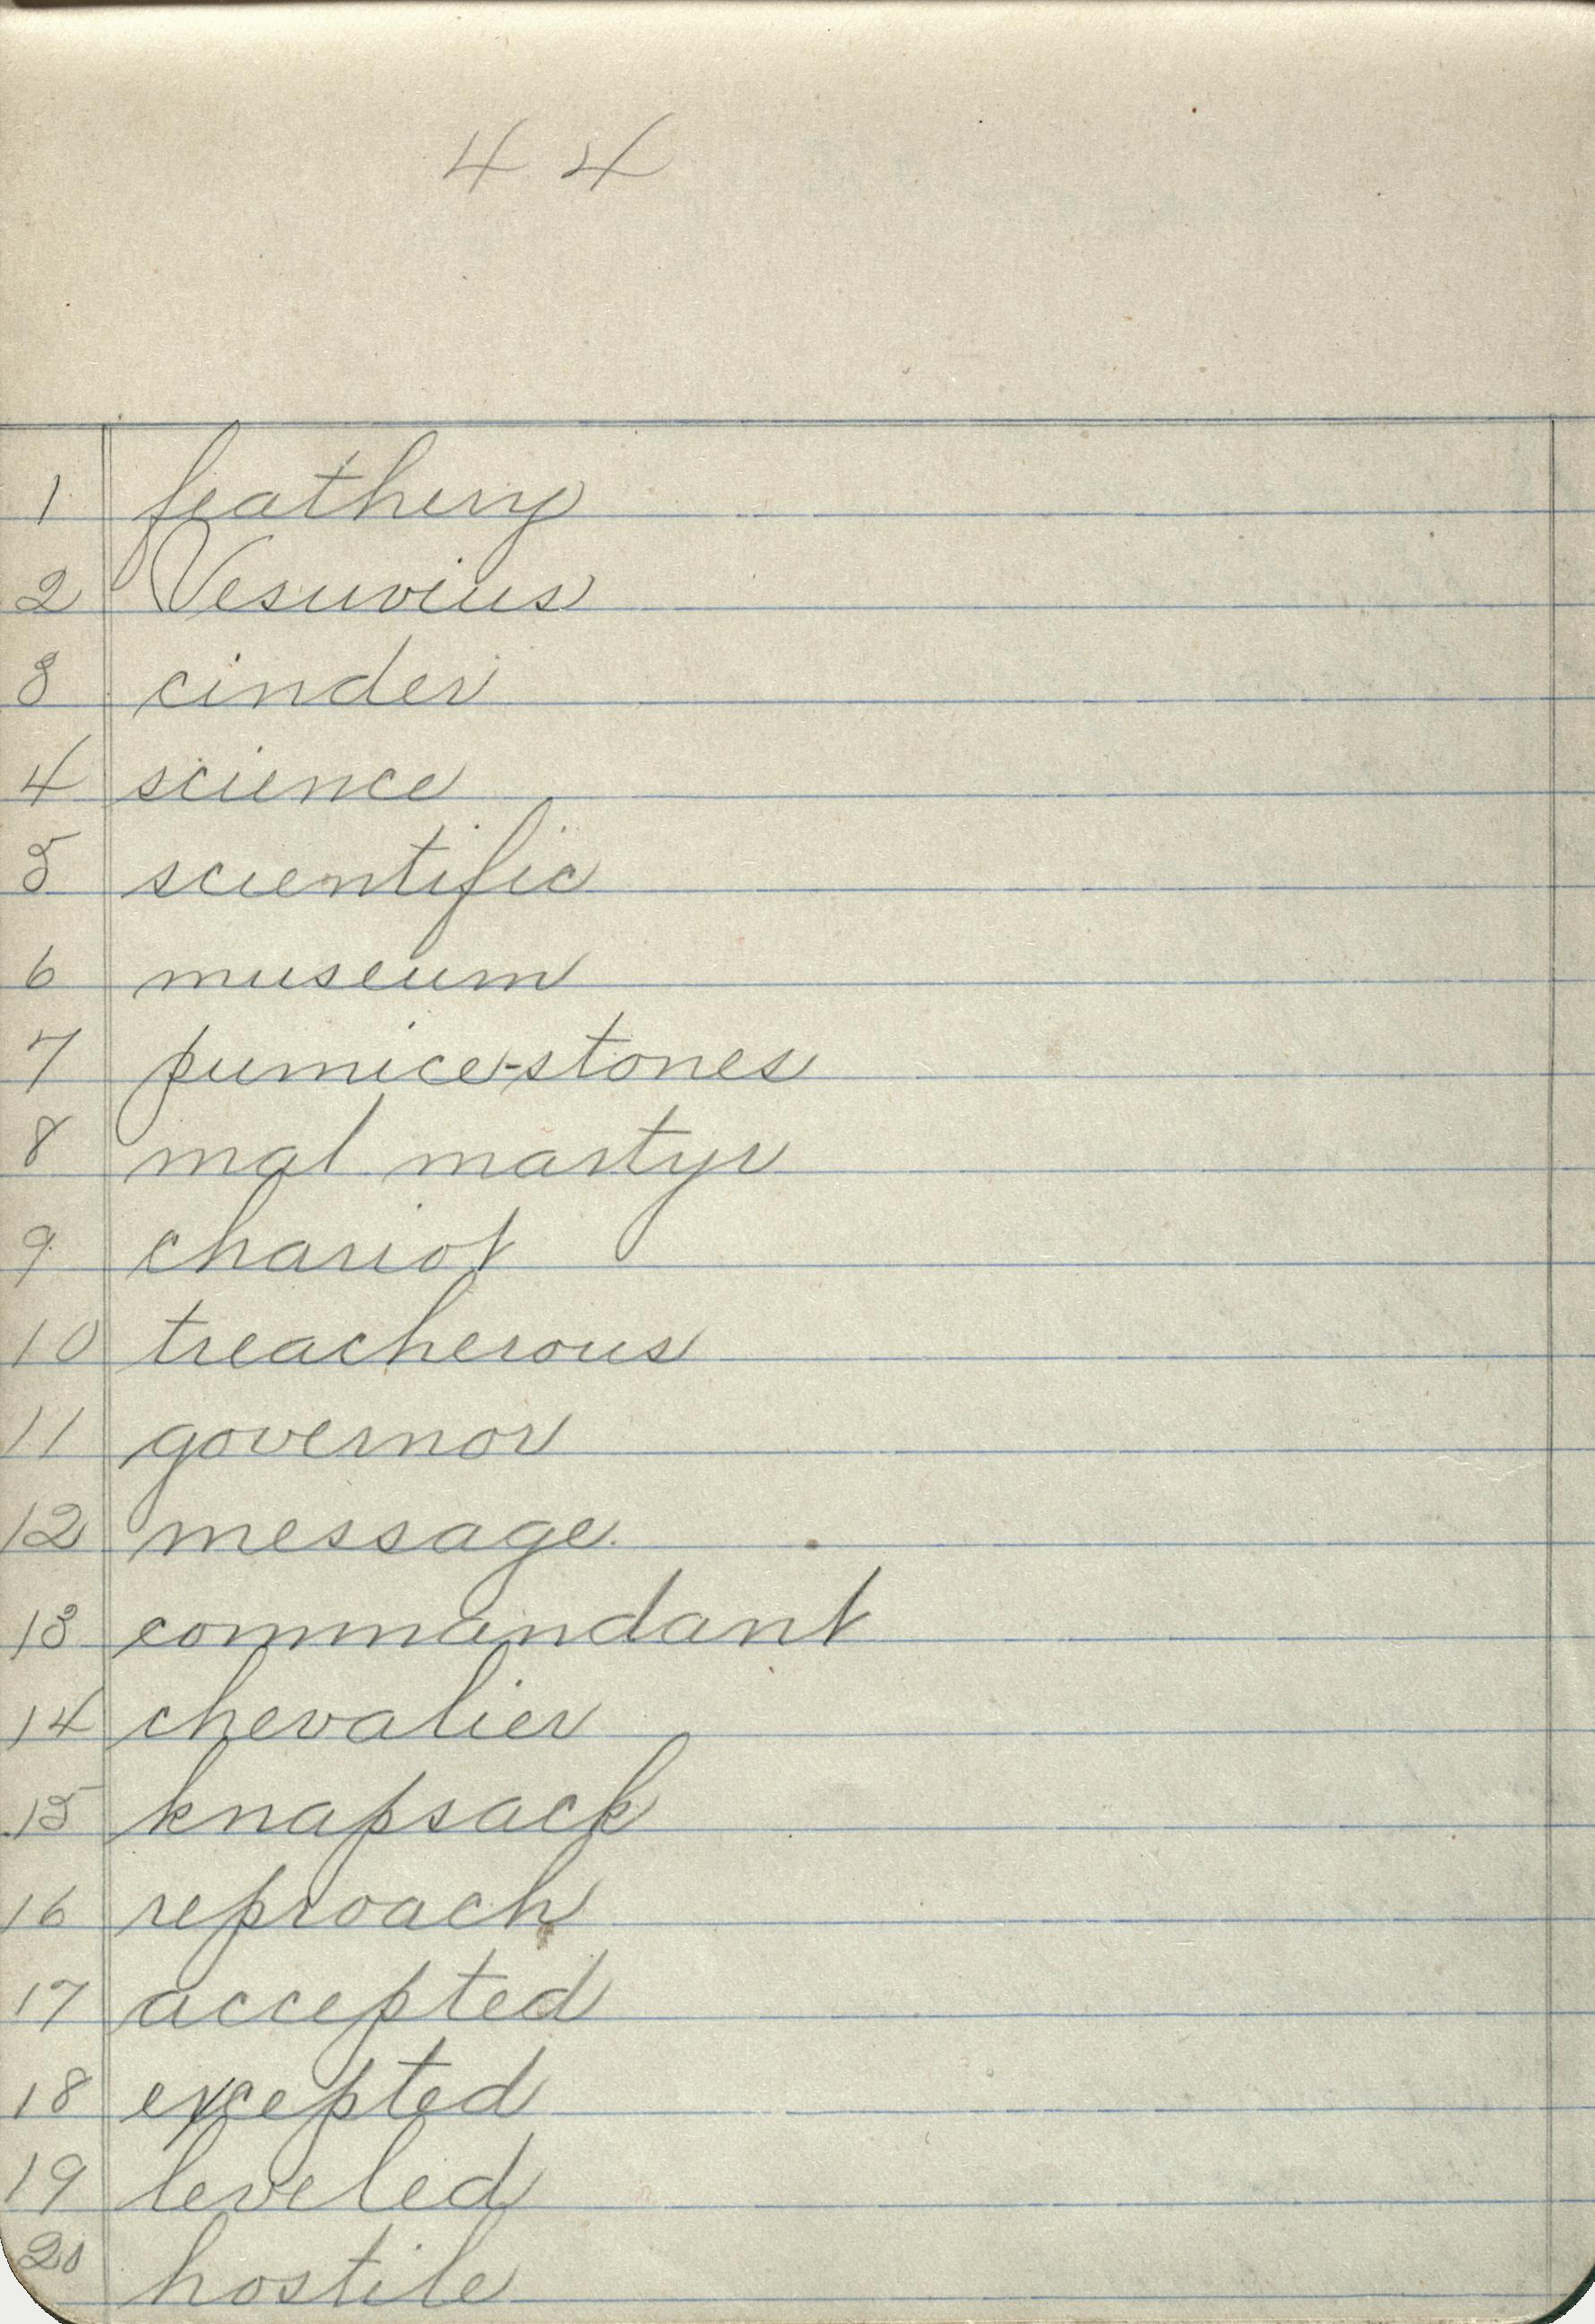 44
1 feathery
2 Vesuvius
3 cinder
4 science
5 scientific
6 museum
7 pumice-stones
8 mal martyr
9 chariot
10 treacherous
11 governor
12 message
13 commandant
14 chevalier
15 knapsack
16 reproach
17 accepted
18 excepted
19 leveled
20 hostile